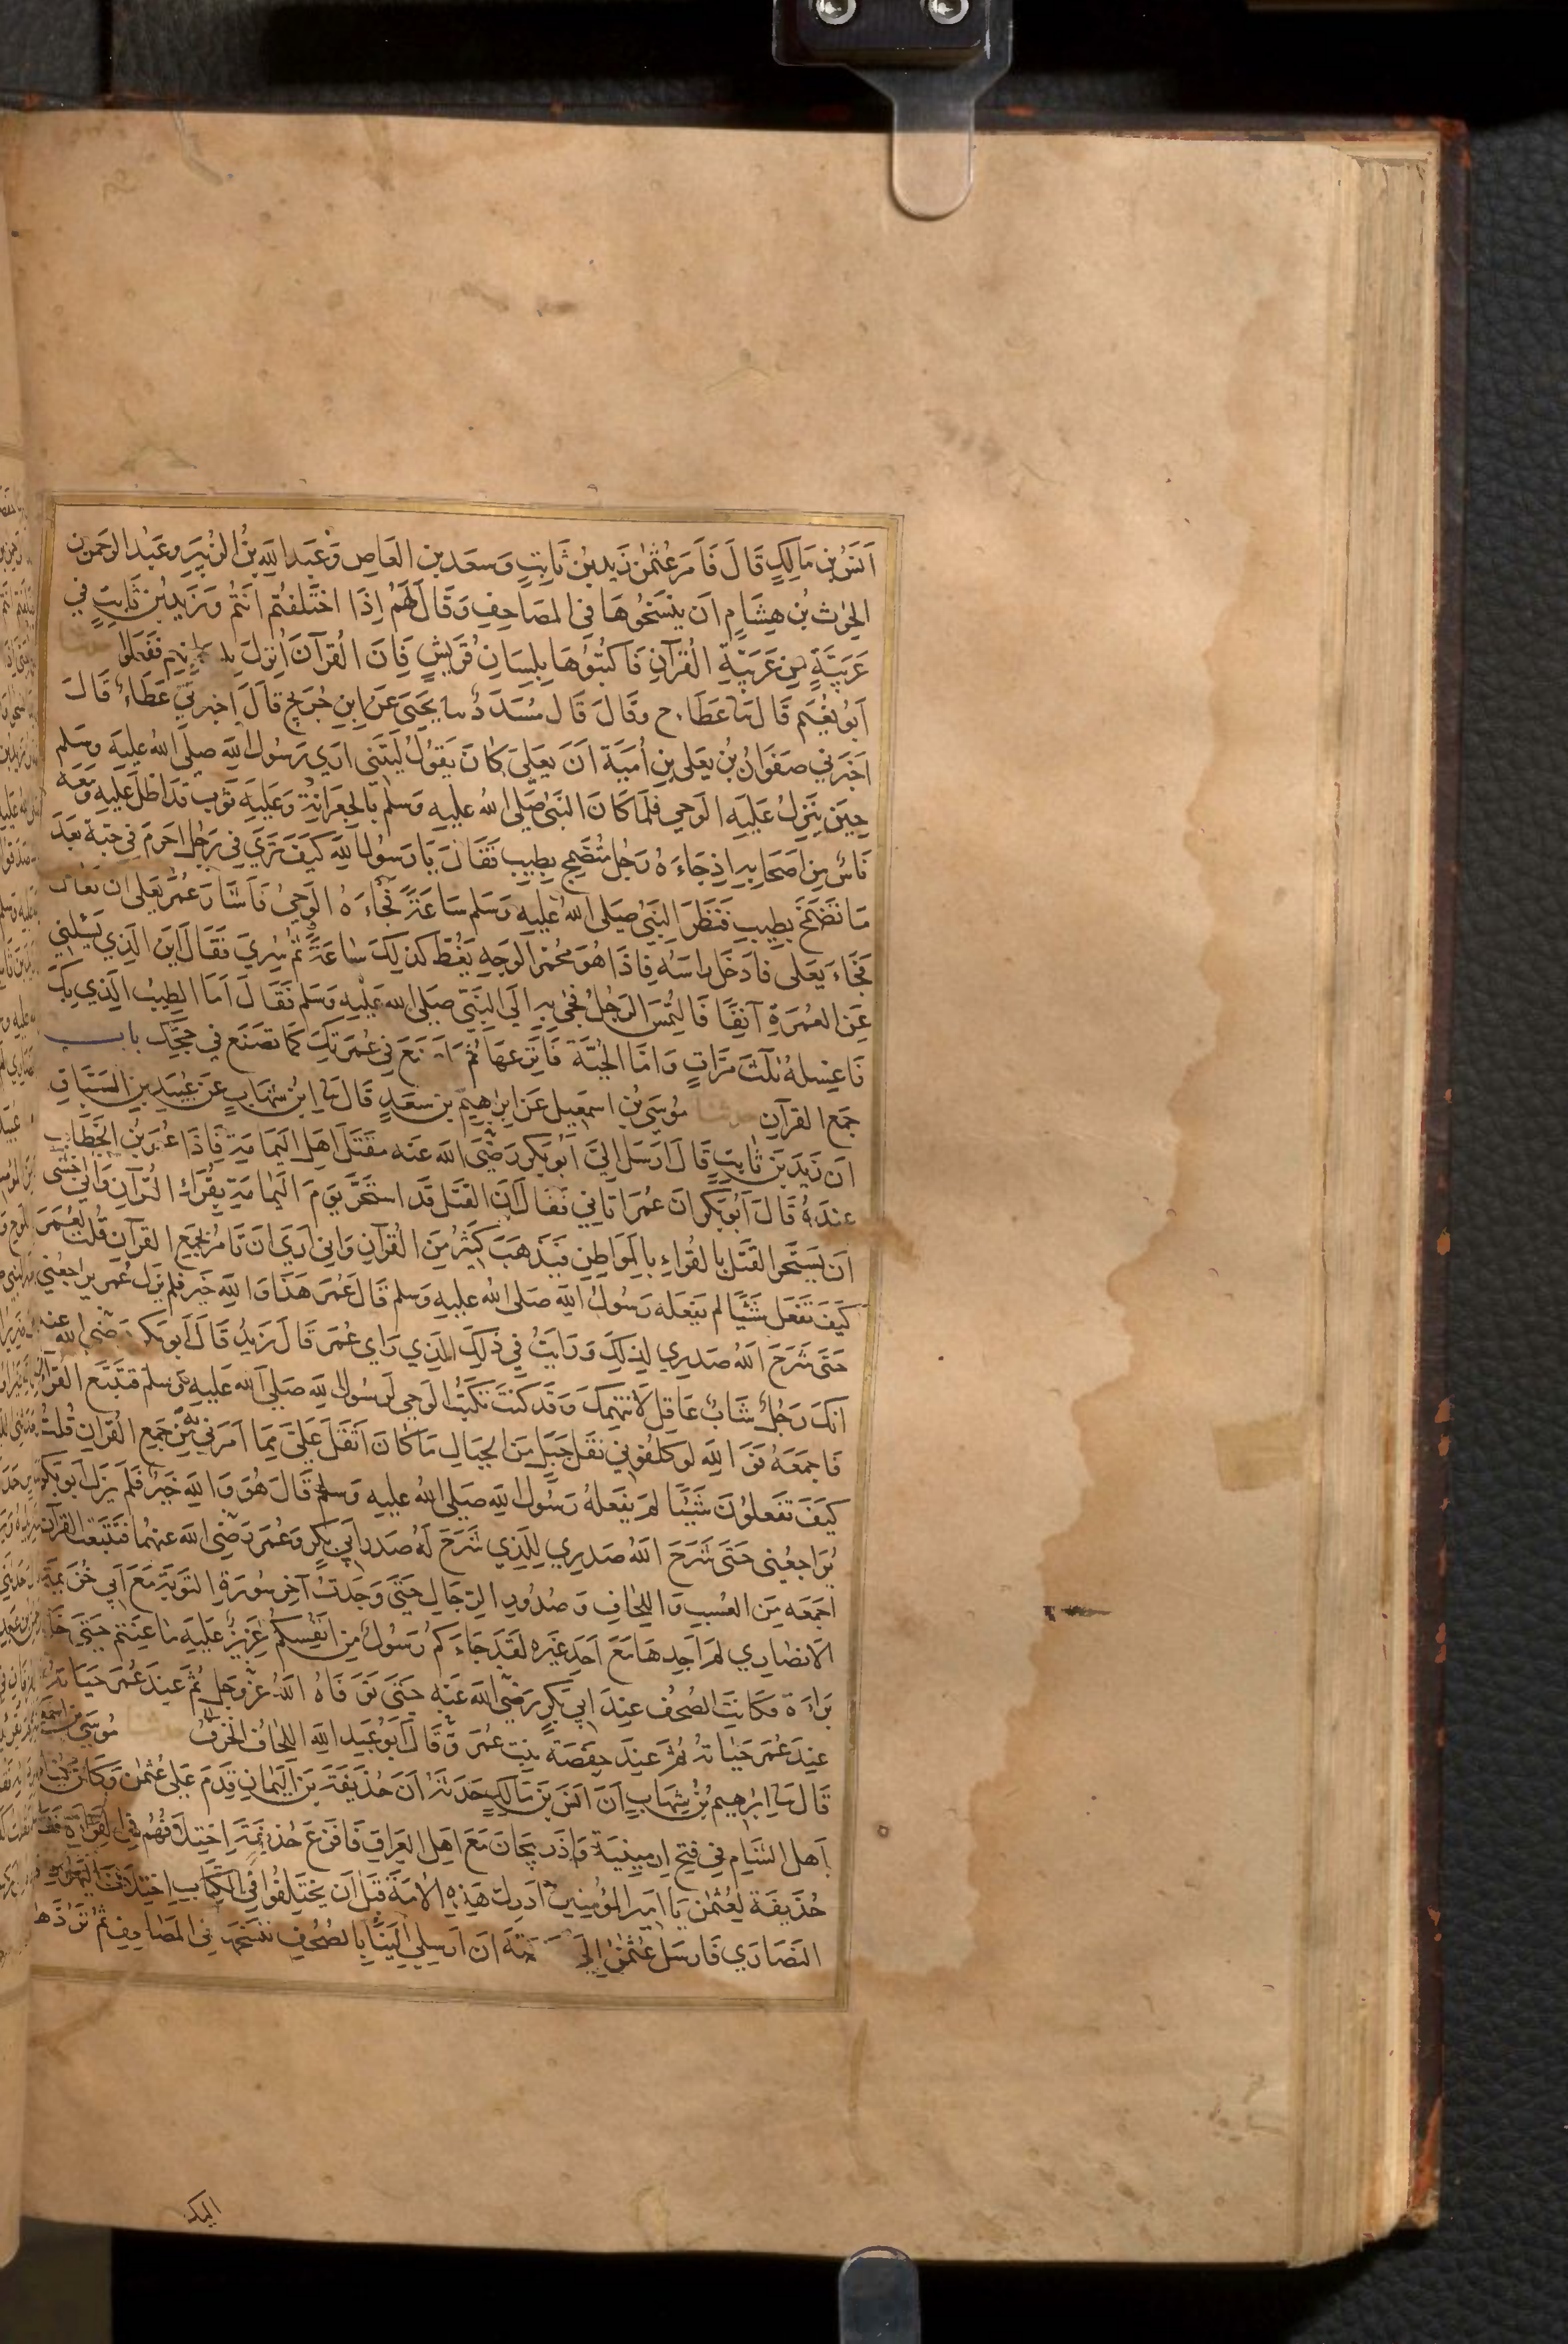 اَنَسُ بْنِ مَالِكٍ قَالَ فَاَمَرَ عُثْمٰنُ زَيدِ بْنَ ثَابِتٍ وَسَعَد بن العَاصِ وَعَبدِ اللهِ بنُ الزُبَيرِ وعَبْدَ الرَحمٰن
الحٰرث بُن هِشَامٍ اَن يَنْسَخُوهَا فى المَصَاحِفِ وَقَالَ لَهُمْ اِذَا اختَلفتُم اَنْتُمْ وَزَيدِ بْن ثَابِتٍ فى
عَرَبيَّةٍ مِن عَرَبيَّةِ القُرآنِ فَاكتُبُوْهَا بِلِسَانِ قُرَيشٍ فَاِنَ القُرآنَ اُنْزِلَ بلسانهم فَفَعَلوا
اَبُو نُعَيم قَال ثنا عَطَاء ح وقَالَ قَال مُسَدَدُ ثنا يَحيَى عَن اِبنِ جُرَيجٍ قالَ اَخبرنَي عَطَاءُ قَالَ
اَخبَرَني صَفوَانُ بْنُ يَعلى بنِ اُمَيَة اَنَ يَعلىَ كَانَ يَقُولُ لَيتَني اَرَي رَسُولَ اللهِ صلى الله عليه وسلم
حِينَ يَنزِلُ عَليَهِ الوَحيِ فَلَمَا كَانَ النَبىُ صَلى اللهُ عليهِ وَسلم بِالجِعرَانَةِ وَعَليهِ ثَوبُ قَد اَظلَ عَليَهِ وَمَعَه
نَاسُ مِن اَصحَابِهِ اِذ جَاءَهُ رَجُل مُتَضَمِخ بِطِيبٍ فَقَالَ يَا رَسُولَ اللهِ كَيفَ تَرَي فِي رَجُلٍ اَحرَمَ في جبَة بَعدَ
مَا تَضَمَخَ بِطِيبٍ فَنَظَرَ النَبَىُ صلى اللهُ عليهِ وَسَلم سَاعَةً فَجَاءَهُ الوَحيُ فَاَشَارَ عُمَرُ يَعلَى اَن تَعَال
فَجَاءَ يَعَلى فاَدخَلَ راَسَهُ فَاِذَا هُوَ مُحْمَرُ الوَجِهِ يَغُطُ كَذلِكَ سَاعَةً ثُمَّ سُرِيَ فَقَالَ اَينَ الَذِي يَسْئلُني
عَنِ العُمرَةِ آنِفًا فَالتُمِسَ الرَجُلُ فجٰى بِهِ اِلَى النَبىِّ صَلى الله عَليهِ وَسَلم فَقَالَ اَمَا الطِيبُ الَذِي بِكَ
فَاغسِلهُ ثلٰثَ مَرَّاتٍ وَامَّا الجُبَّة فَانزِعهَا ثُمَ اصنَعَ في عُمرَتِكَ كَمَا تصَنَع في حجِّكَ باب
جَمع القرآن حدثنا مُوسَى بنُ اسمٰعيل عَن اِبرٰهيِم بن سَعدٍ قَالَ ثنا ابنُ شهَابٍ عَن عُبَيد بن السَبَاق
ان زَيدَ بَن ثَابِتٍ قَالَ ارَسَل اِلَيَّ اَبُو بكرٍ رَضَّى الله عَنه مَقتَل اَهلِ اليَمَامَةِ فَاِذَا عُمَرُ بْنُ الخَطَّاب
عِندَهُ قَالَ اَبُو بكر اِنَ عُمَرَ اتَاني فَقَال اِن القَتَل قَد استَحَرَ يَومَ اليَمَامَةِ بِقُرَاء القُرآنِ وَاِني اَخشى
اَن يَستَحرا القَتَل بالقُراءِ بِالموَاطِن فَيَذهَبَ كثِيْرُ مِنَ القُرآنِ وَانى اَرَي اَن تَامُرَ بجَمَع القرآن قُلتُ لعُمَرَ
كَيفَ تَفعَل شَيْئًا لم يَفعَله رَسُولُ الله صَلى الله عليهِ وَسلم قَالَ عُمَرَ هَذَا وَاللهِ خَيرُ فلم يَزل عُمَر يراجعُني
حَتَى شَرَحَ اللهُ صَدِري لِذلِكَ وَرَاَيتُ في ذلِكَ الَذِي رَاي عُمَرَ قَالَ زَيدُ قَالَ اَبو بَكر رضى الله عنه
اِنكَ رَجُلُ شَابُ عَاقِل لَا نَتَهِمُكَ وَقَد كُنتَ تَكتُبُ الوَحيِ لِرَسُول الله صَلى الله عَليهِ وسلم فتَتَبَّع القرآن
فَاجمَعَهُ فَوَ اللهِ لو كلفُوني نقَل جَبَلٍ مَن الجِبالِ مَا كانَ اَثقَلَ عَليَّ مِمَا اَمَرَني بِه مِّن جَمعِ القُرانِ قُلتُ
كَيَفَ تَفعَلُونَ شَيْئًا لمَ يَفعَلهُ رَسُولُ اللهِ صَلى اللهُ عليهِ وَسلم قَالَ هُوَ وَاللهِ خَيرُ فَلَم يَزَل اَبُو بكر
يُرَاجعُنى حَتَى شَرَحَ اللهُ صَدِري لِلَذِي شَرَحَ لَهُ صَدر اَبي بكرٍ وَعُمَر رَضَّى الله عنهُمَا فتَتَبَعتُ القرآن
اَجمَعَه مِنَ العُسبِ وَاللِخَافِ وَصُدُورِ الرِجَالِ حَتَى وَجَدتُ آخِر سُورَة التَوبَةِ مَعَ اَبي خُزَيمَة
الاَنصَارِي لم اَجِدهَا مَعَ اَحَدِ غَيرهِ لَقَد جَاءَكُم رَسُولُ مِن اَنفُسِكُم عَزِيزُ عَليهِ مَا عَنِتُم حَتى خَاتمة
بَرَاءَة فَكَانَتِ الصُحُف عِندَ اَبي بَكرٍ رَضَّى اللهَ عَنهِ حَتَى تَوَفَاهُ اللهُ عزّوجَل ثمَ عِندَ عُمَرَ حَيَاتهُ
عِندَ عُمَرَ حَيٰاتهُ ثُمَّ عِندَ حِفصَةَ بِنتِ عُمَر وَقَالَ اَبُو عُبَيدِ اللهِ اللِخَافُ الخَزَفُ حدثنا مُوسَى بن اسمٰعيل
قَالَ ثنا اِبرٰهيم بْنُ شِهَابٍ اَنَ اَنسَ بَن مَالِكٍ حَدَثَهُ اَنَ حُذَيفَةَ بَن اليَمَانِ قَدِمَ عَلى عُثمٰنَ وَكَانَ يُغَازي
اَهلَ الشَام في فتح اِرمِينِيَة وَاَذرَبيجَانَ مَعَ اَهلِ العِرَاقِ فَاَفزَعَ حُذَيفَة اِختِلَافُهُم في القِرَاءَة فقَال
حُذَيفَة لِعُثمٰن يَا اَمِيرَ المُؤمِنين اَدرِك هَذِهِ الاُمَة قَبَل اَن يَختَلِفُوا فى الكِتَاب اِختِلَافَ اليَهُود
النَصَارَي فَارسَل عُثمٰنُ اِلى حفصة اَن اَرسِلي اِلَينَا بِالصُحُفِ نَنسَخهَا في المَصَاحِفِ ثمَّ نَرُدُّهَا
اليك